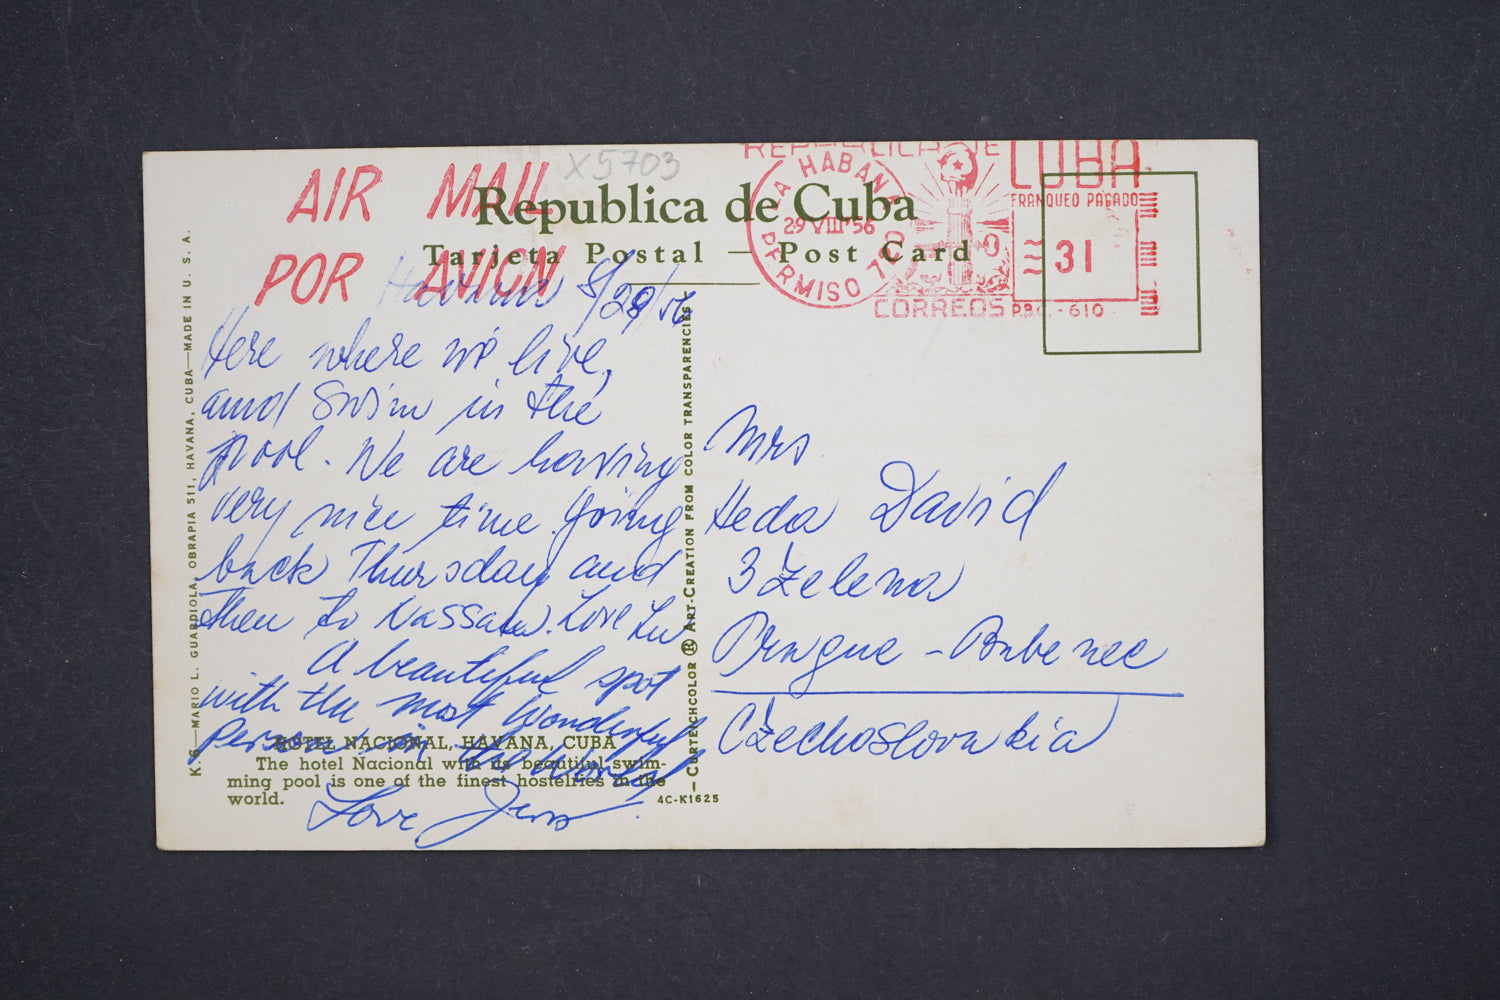 AIR MAIL
POR AVION
X5703
Republica de Cuba
Tarjeta Postal — Post Card
REPUBLICA DE CUBA
LA HABANA
29 VIII '56
PERMISO
FRANQUEO PAGADO
31
CORREOS P.B.C. - 610
Havana 8/28/56
Here where we live,
and swim in the
pool. We are having
very nice time. Going
back Thursday and
then to Nassau. Love
A beautiful spot
with the most wonderful
person in the world
Love
Mrs
Heda David
3 Zelena
Prague - Bubenec
Czechoslovakia
HOTEL NACIONAL, HAVANA, CUBA
The hotel Nacional with its beautiful swim-
ming pool is one of the finest hostelries in the
world.
4C-K1625
K.G.—MARIO L. GUARDIOLA, OBRAPIA 511, HAVANA, CUBA—MADE IN U. S. A.
—CURTEICHCOLOR ® ART-CREATION FROM COLOR TRANSPARENCIES—